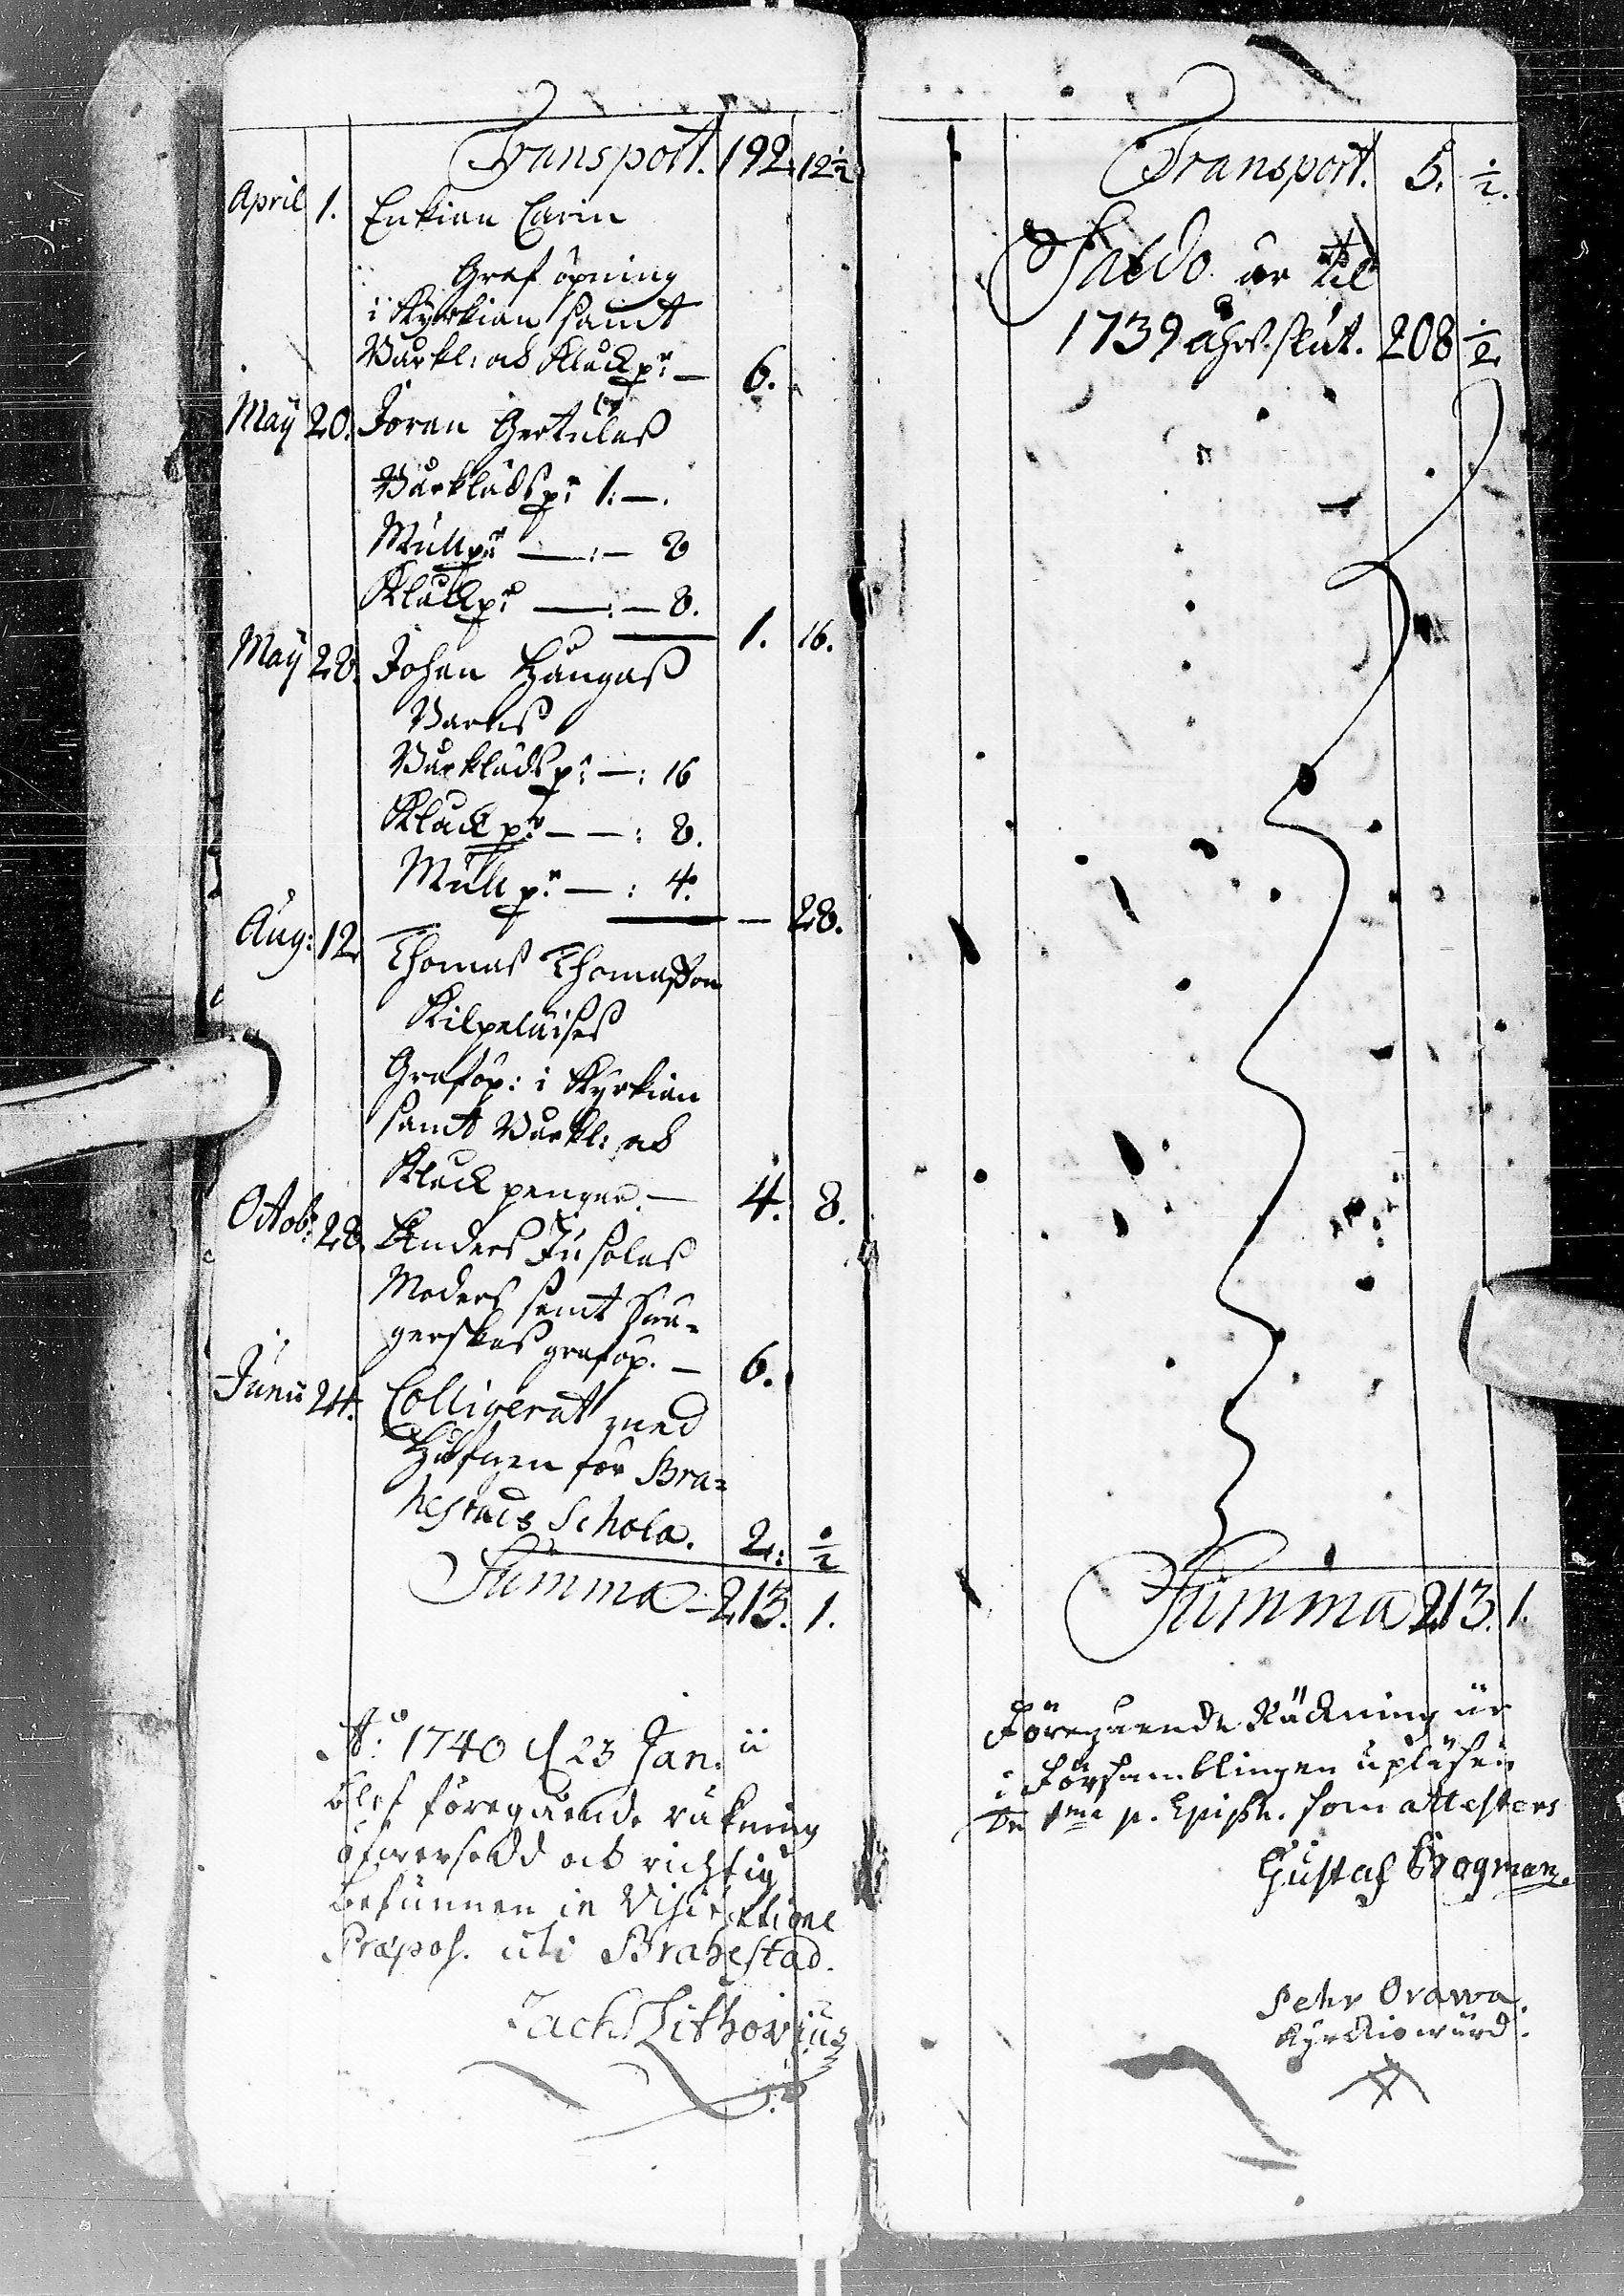 Transport. 192. 12½
April 1. Enkian Carin
Graf öpning
i Kyrkian samt
Bårkl: ock Klåck p:r — 6.
May 20. Jöran Gertulas
Bårkläds p:r 1. —.
Mull p:r — : — 8
Klåck p:r — : — 8.
1. 16.
May 28. Johan Hangas
Barns
Bårkläds p:r — : 16
Klåck p:r — — : 8.
Mull p:r — : 4.
— 28.
Aug: 12. Thomas Thomasson
Kilpeläises
Graföp: i Kyrkian
samt Bårkl: ock
Klåck penger. — 4. 8.
Octob: 28. Anders Jusolas
Moders samt Swä-
gerskas graföp. — 6.
Junii 24. Colligerat med
Håfwen för Bra=
hestads Schola. 2: ½
Summa — 213. 1.
A:o 1740 d 23 Jan. ii
blefföregående räkning
öfwersedd ock richtig
befunnen in Visitatione
Præpos. uti Brahestad.
Zach: Lithovius
Transport. 5. ½.
Saldo är til
1739 åhrs slut. 208 ½
Summa 213. 1.
Föregående Räckning är
i Församblingen upläsin
Dn 1ma p. Epiph. som attesters
Gustaf Bogman.
Pehr Orawa.
Kyrckiowärd.